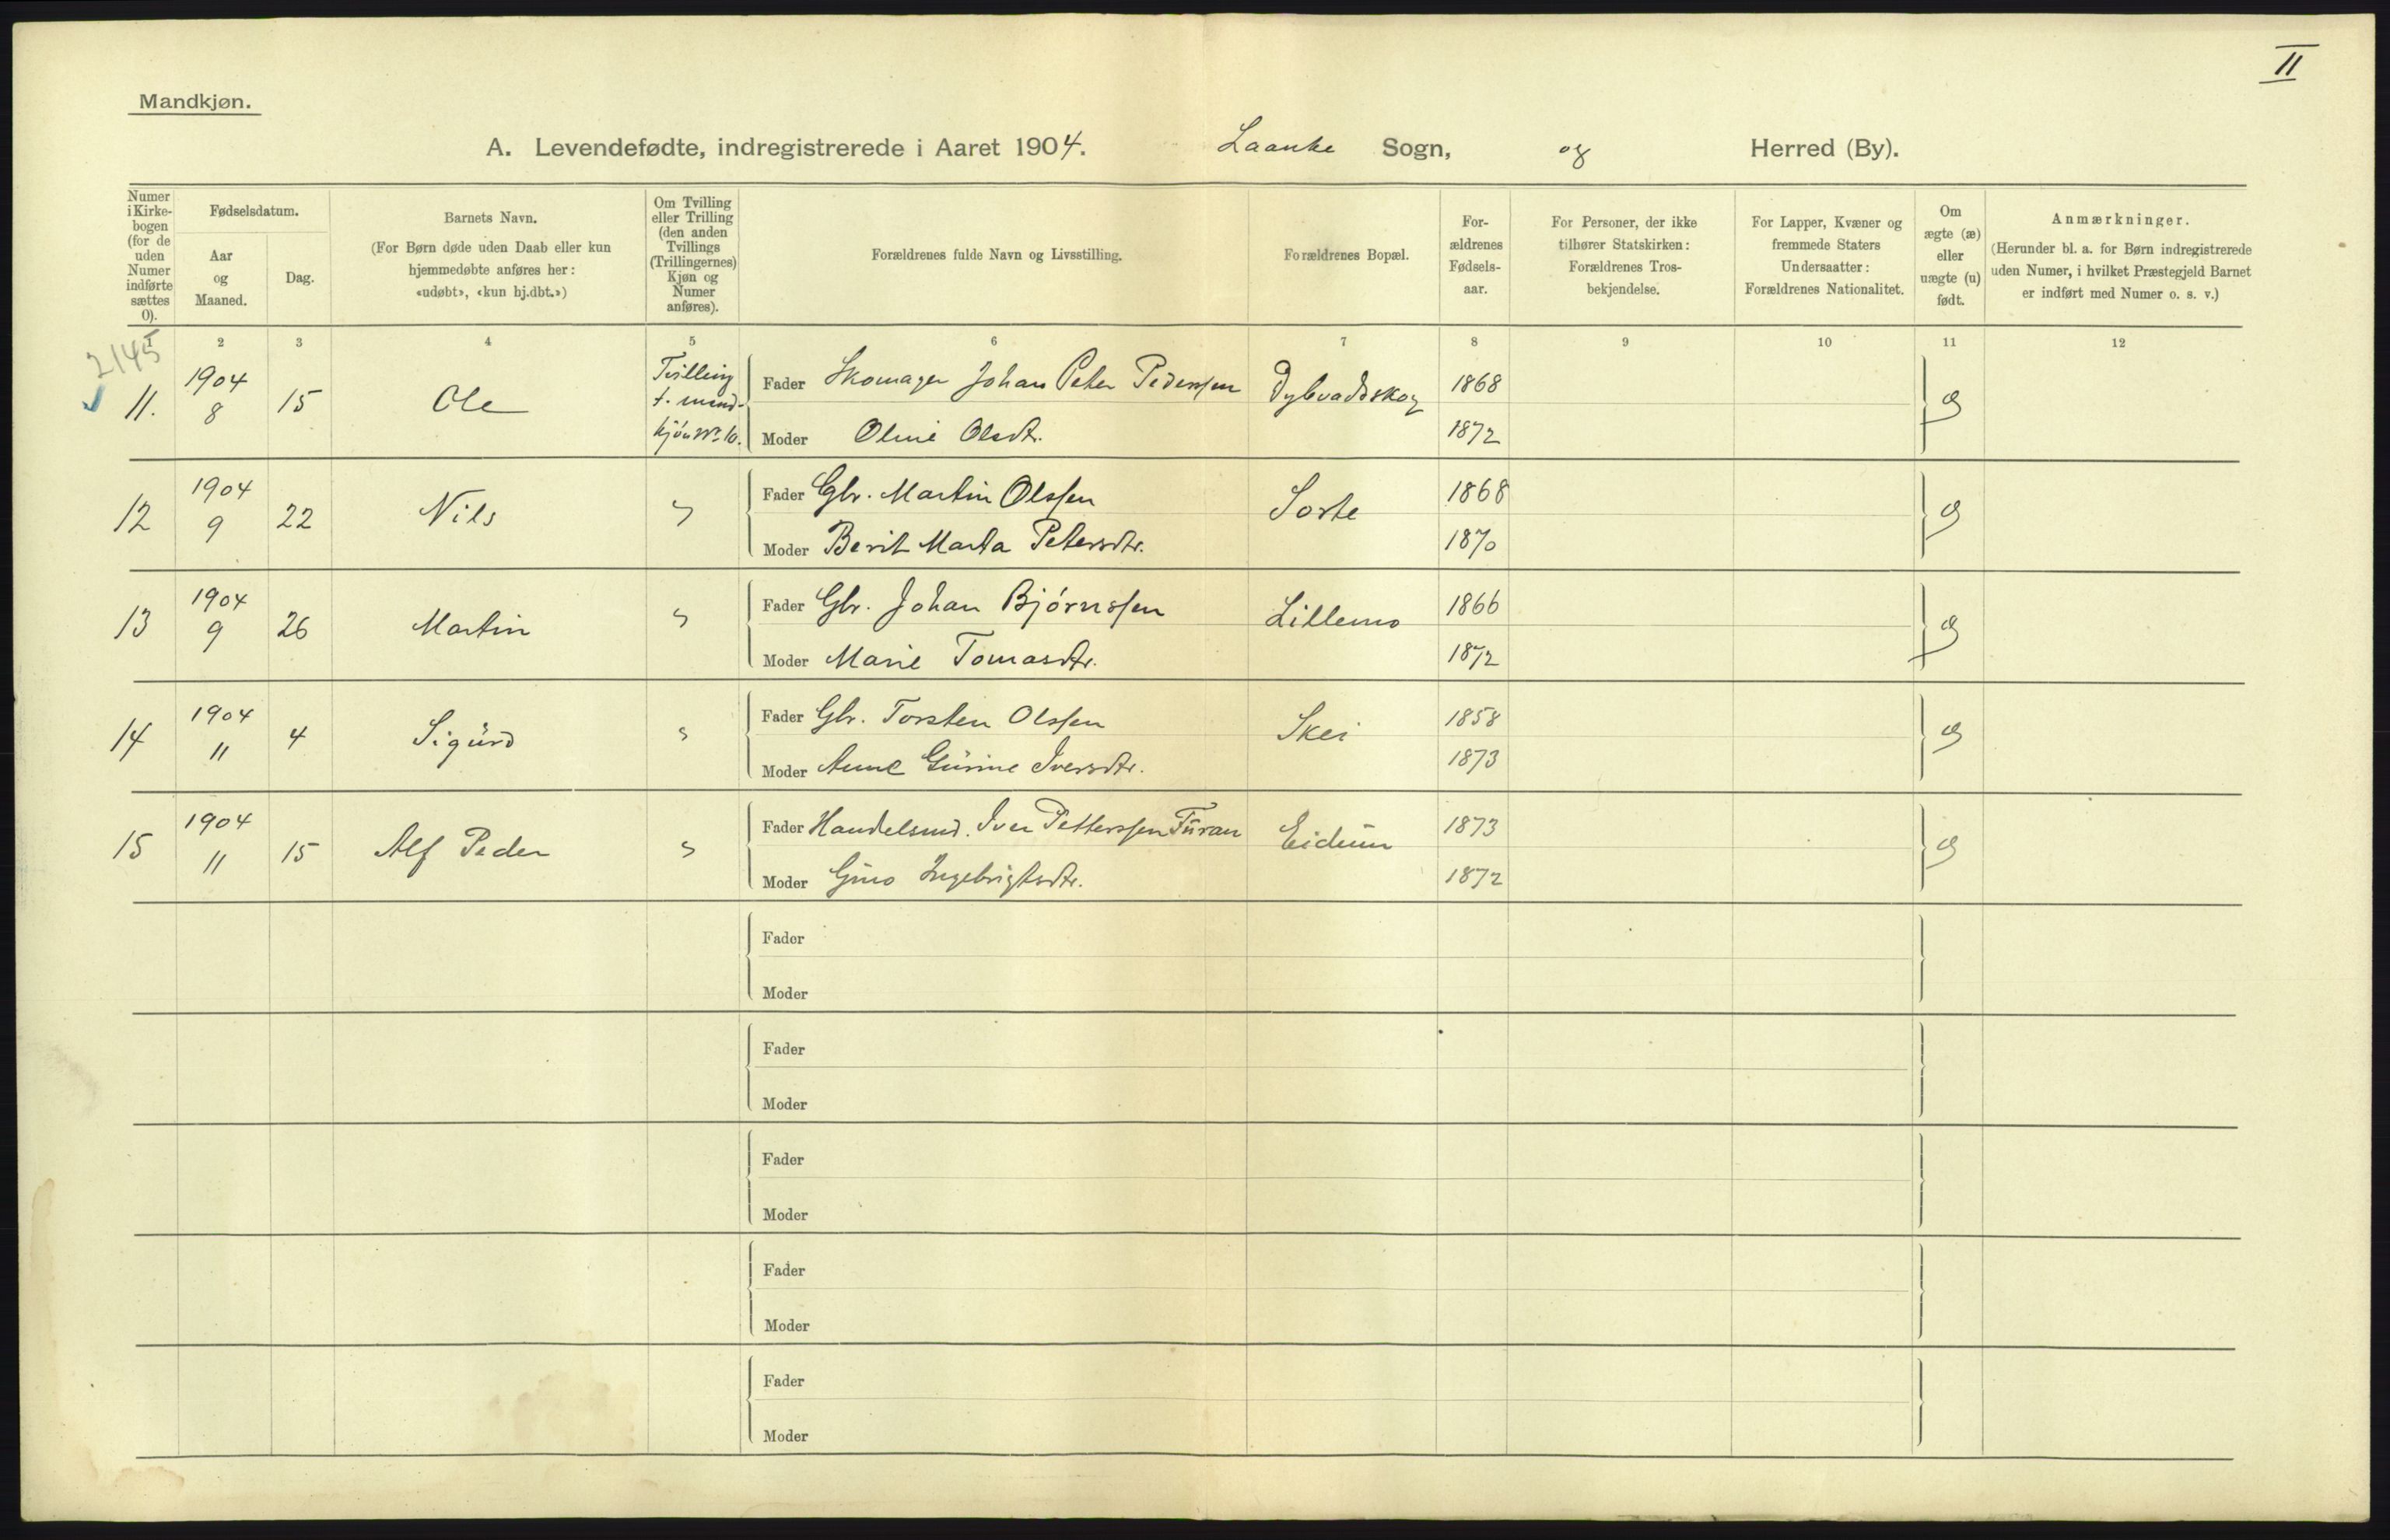 II
Mandkjøn.
A. Levendefødte, indregistrerede i Aaret 1904. Laanke Sogn, og Herred (By).
Numer i Kirke- bogen (for de uden Numer indførte sættes 0).
Fødselsdatum.
Aar og Maaned.
Dag.
Barnets Navn.
(For Børn døde uden Daab eller kun
hjemmedøbte anføres her:
«udøbt», «kun hj.dbt.»)
Om Tvilling
eller Trilling
(den anden
Tvillings
(Trillingernes)
Kjøn og
Numer
anføres).
Forældrenes fulde Navn og Livsstilling.
Forældrenes Bopæl.
For-
ældrenes
Fødsels-
aar.
For Personer, der ikke
tilhører Statskirken:
Forældrenes Tros-
bekjendelse.
For Lapper, Kvæner og
fremmede Staters
Undersaatter:
Forældrenes Nationalitet.
Om
ægte (æ)
eller
uægte (u)
født.
Anmærkninger.
(Herunder bl. a. for Børn indregistrerede
uden Numer, i hvilket Præstegjeld Barnet
er indført med Numer o. s. v.)
1 2 3 4 5 6 7 8 9 10 11 12
2145
11. 1904 8 15 Ole Tvilling t. mand- kjøn No. 10.
Fader Skomager Johan Peter Pedersen Dybvadskog 1868 æ
Moder Oline Olsdtr. 1872
12 1904 9 22 Nils "
Fader Gbr. Martin Olssen Sorte 1868 æ
Moder Berit Marta Petersdtr. 1870
13 1904 9 26 Martin "
Fader Gbr. Johan Bjørnssen Lillemo 1866 æ
Moder Marie Tomasdtr. 1872
14 1904 11 4 Sigurd "
Fader Gbr. Torsten Olssen Skei 1858 æ
Moder Anne Gurine Iversdtr. 1873
15 1904 11 15 Alf Peder "
Fader Handelsmd. Iver Petterssen Furan Eidum 1873 æ
Moder Ingebrigtsdtr. 1872
Fader
Moder
Fader
Moder
Fader
Moder
Fader
Moder
Fader
Moder